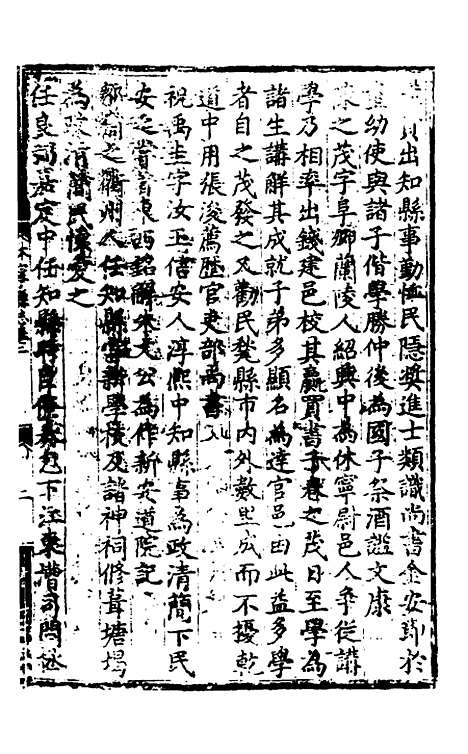 出知縣事勤恤民隱獎進士類識尚書金安節於
幼使與諸子偕學勝仲後為國子祭酒謚文康
之茂字阜卿蘭陵人紹興中為休寧尉邑人爭從講
學乃相率出錢建邑校其贏買書予養之茂日至學為
諸生講解其成就子弟多顯名為達官邑由此益多學
者自之茂發之又勸民甃縣市內外數里成而不擾乾
道中用張浚薦歷官吏部尚書
祝禹圭字汝玉信安人淳熙中知縣事為政清簡下民
安之嘗言東西銘解朱文公為作新安道院記
鄒 之衢州人任知縣 新學校及諸神祠修葺塘堨
為政 簡民懷愛之
任良 嘉定中任知縣時 下江東漕司